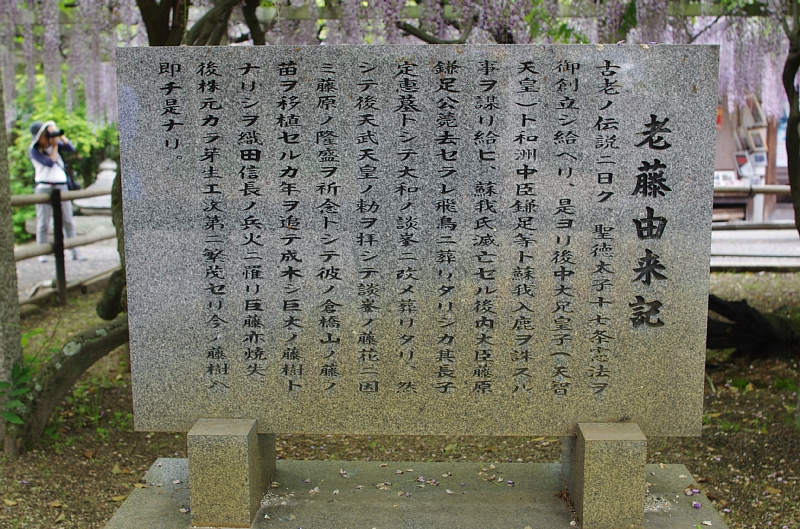 老藤由来記
古老ノ伝説ニ曰ク、聖徳太子十七条憲法ヲ
御創立シ給ヘリ、是ヨリ後中大兄皇子(天智
天皇)ト和洲中臣鎌足等ト蘇我入鹿ヲ誅スル
事ヲ謀リ給ヒ、蘇我氏滅亡セル後内大臣藤原
鎌足公薨去セラレ飛鳥ニ葬リタリシカ其長子
定恵墓トシテ大和ノ談峯ニ改メ葬リタリ、然
シテ後天武天皇ノ勅ヲ拝シテ談峯ノ藤花ニ因
ミ藤原ノ隆盛ヲ祈念トシテ彼ノ倉橋山ノ藤ノ
苗ヲ移植セルカ年ヲ追テ成木シ巨大ノ藤樹ト
ナリシヲ織田信長ノ兵火ニ罹リ巨藤亦焼失
後株元カラ芽生エ次第ニ繁茂セリ今ノ藤樹ハ
即チ是ナリ。